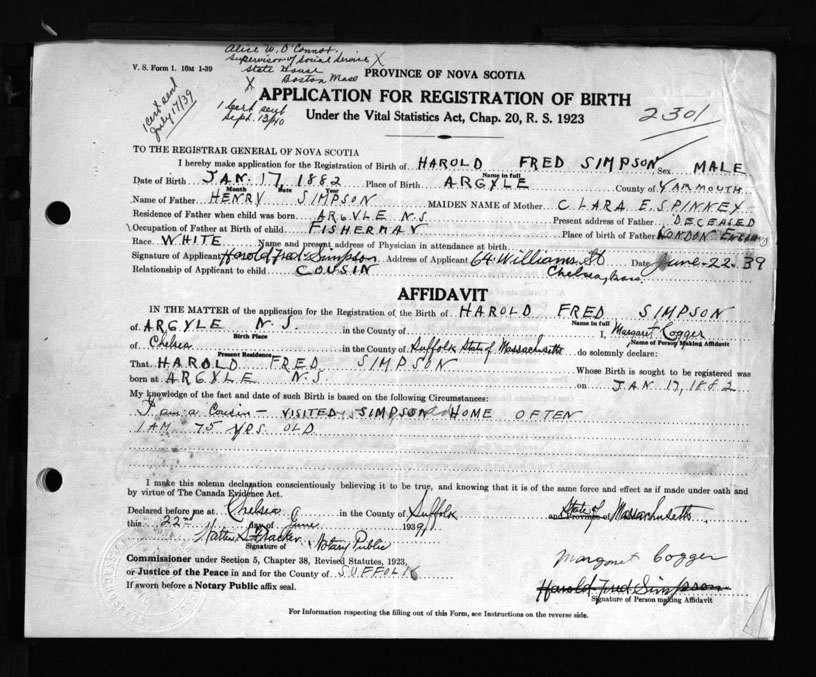 Alice W. O'Connor
Supervisor of Social Service X
State House
X Boston Mass
V. S. Form 1. 10M 1-39
1 cert sent
July 17/39
1 Cert sent
Sept. 13/40
PROVINCE OF NOVA SCOTIA
APPLICATION FOR REGISTRATION OF BIRTH
2301
Under the Vital Statistics Act, Chap. 20, R. S. 1923
TO THE REGISTRAR GENERAL OF NOVA SCOTIA
I hereby make application for the Registration of Birth of HAROLD FRED SIMPSON Sex MALE
Name in full
Date of Birth JAN. 17, 1882 Place of Birth ARGYLE County of YARMOUTH
Month Date Year
Name of Father HENRY SIMPSON MAIDEN NAME of Mother CLARA E. SPINNEY
Residence of Father when child was born ARGYLE N.S. Present address of Father DECEASED
Occupation of Father at Birth of child FISHERMAN Place of birth of Father LONDON
Race WHITE Name and present address of Physician in attendance at birth
Signature of Applicant Harold Fred Simpson Address of Applicant 64 Williams St Date June-22-39
Chelsea, Mass.
Relationship of Applicant to child COUSIN
AFFIDAVIT
IN THE MATTER of the application of the Registration of the Birth of HAROLD FRED SIMPSON
Name in full
of ARGYLE N.S. in the County of I, Margaret Cogger
Birth Place Name of Person Making Affidavit
of Chelsea in the County of Suffolk State of Massachusetts do solemnly declare:
Present Residence
That HAROLD FRED SIMPSON Whose Birth is sought to be registered was
born at ARGYLE N.S. on JAN 17, 1882
My knowledge of the fact and date of such Birth is based on the following Circumstances:
I am a Cousin - VISITED SIMPSON HOME OFTEN
I AM 75 YRS OLD
I make this solemn declaration conscientiously believing it to be true, and knowing that it is of the same force and effect as if made under oath and
by virtue of The Canada Evidence Act.
Declared before me at Chelsea in the County of Suffolk and Province of State of Massachusetts
this 22nd day of June 1939
Notary Public
Signature of
Commissioner under Section 5, Chapter 38, Revised Statutes, 1923,
or Justice of the Peace in and for the County of SUFFOLK
If sworn before a Notary Public affix seal.
Margaret Cogger
Harold Fred Simpson
Signature of Person making Affidavit
For Information respecting the filling out of this Form, see Instructions on the reverse side.